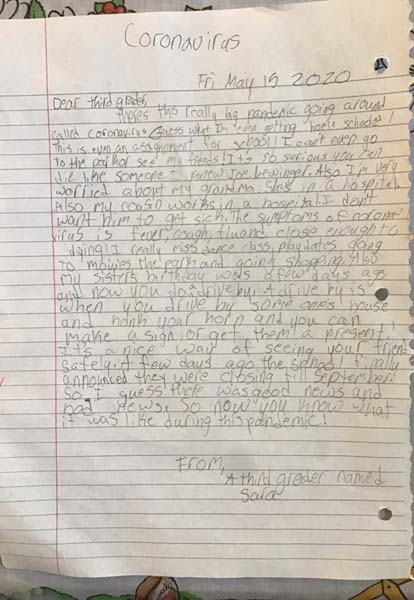 Coronavirus
Fri May 15 2020
Dear third grader,
theres this really big pandemic going around
called coronavirus. Guess what Im even getting home schooled!
This is even an assignment for school! I cant even go
to the park or see my friends! Its so serious you can
die like someone I knew Joe Lewinger. Also I'm very
worried about my grandma. Shes in a hospital.
Also my cousin works in a hospital. I don't
want him to get sick. The symptoms of corona
virus is fever, cough, flu and close enough to
dying! I really miss dance class, playdates going
to movies the park and going shopping. Also
my sisters birthday was a few days ago
and now you do a drive by. A drive by is
when you drive by some ones house
and honk your horn and you can
make a sign, or get them a present!
It's a nice way of seeing your friend
safely. A few days ago the school finally
announced they were closing till September!
So I guess there was good news and
bad news. So now you know what
it was like during this pandemic!
From,
A third grader named
Sara